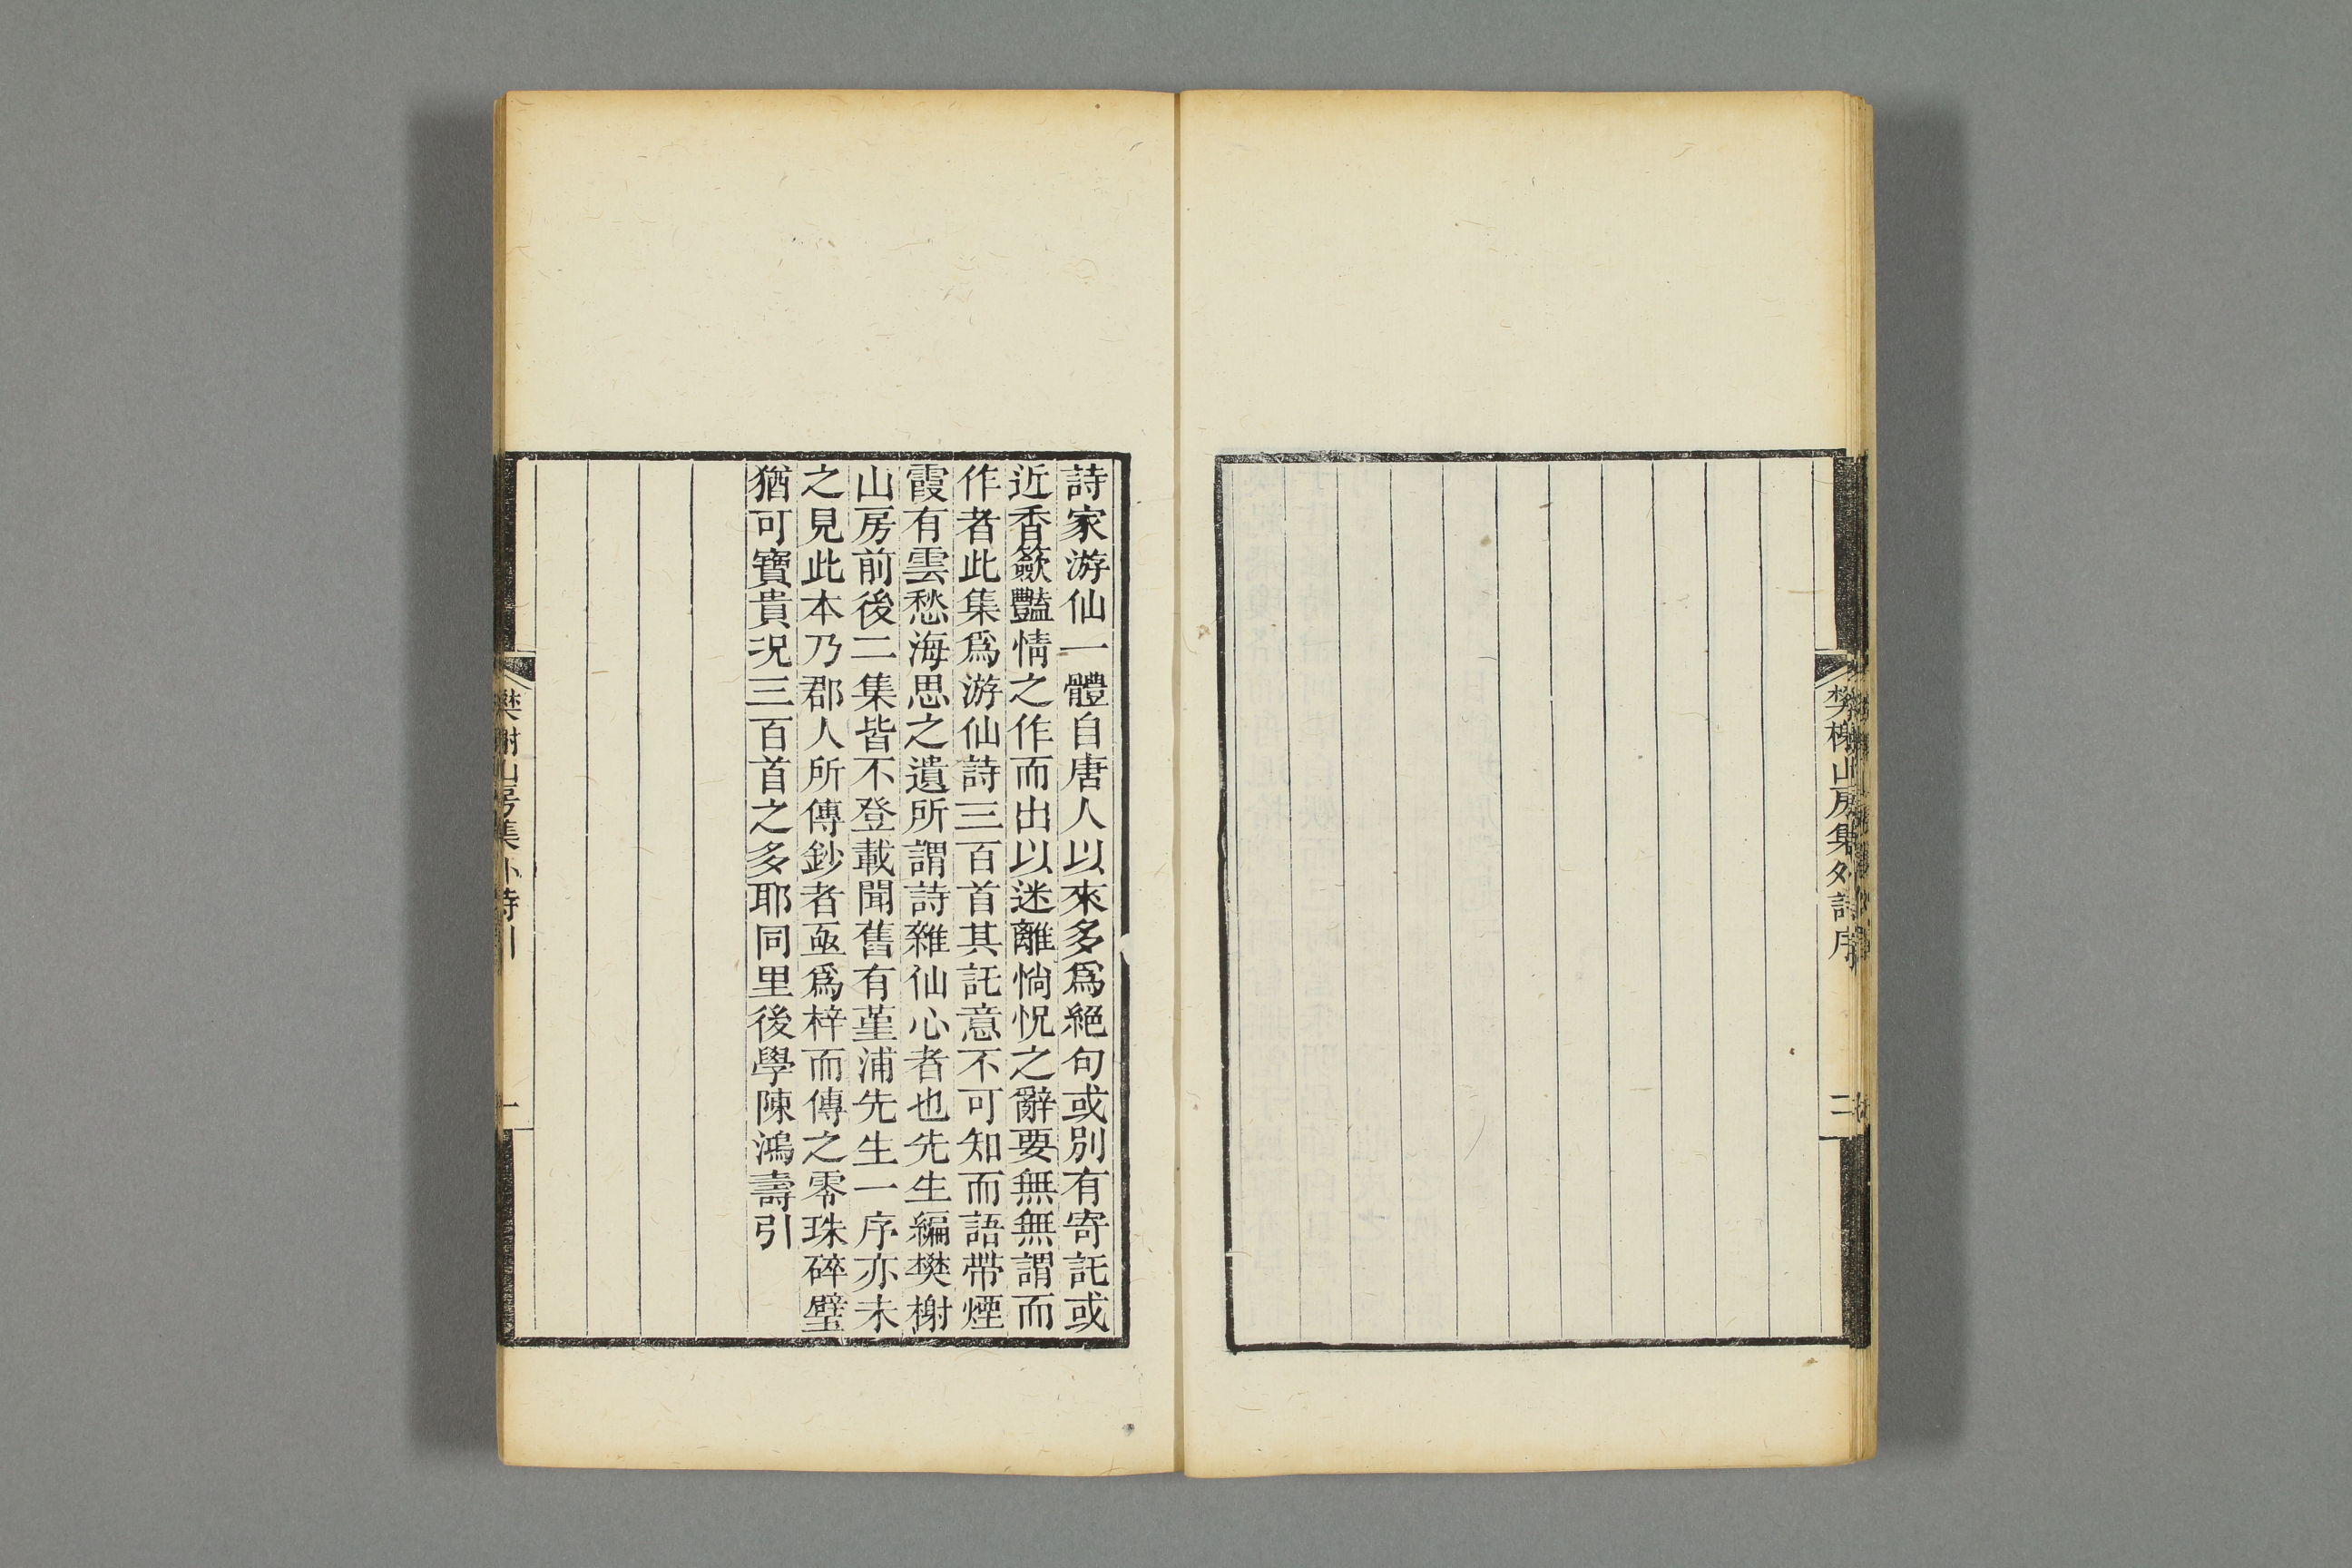 樊榭山房集外詩序
二
詩家游仙一體自唐人以來多爲絕句或別有寄託或
近香籢豔情之作而出以迷離惝怳之辭要無無謂而
作者此集爲游仙詩三百首其託意不可知而語帶煙
霞有雲愁海思之遺所謂詩雜仙心者也先生編樊榭
山房前後二集皆不登載聞舊有堇浦先生一序亦未
之見此本乃郡人所傳鈔者亟爲梓而傳之零珠碎璧
猶可寶貴况三百首之多耶同里後學陳鴻壽引
樊榭山房集外詩引
一